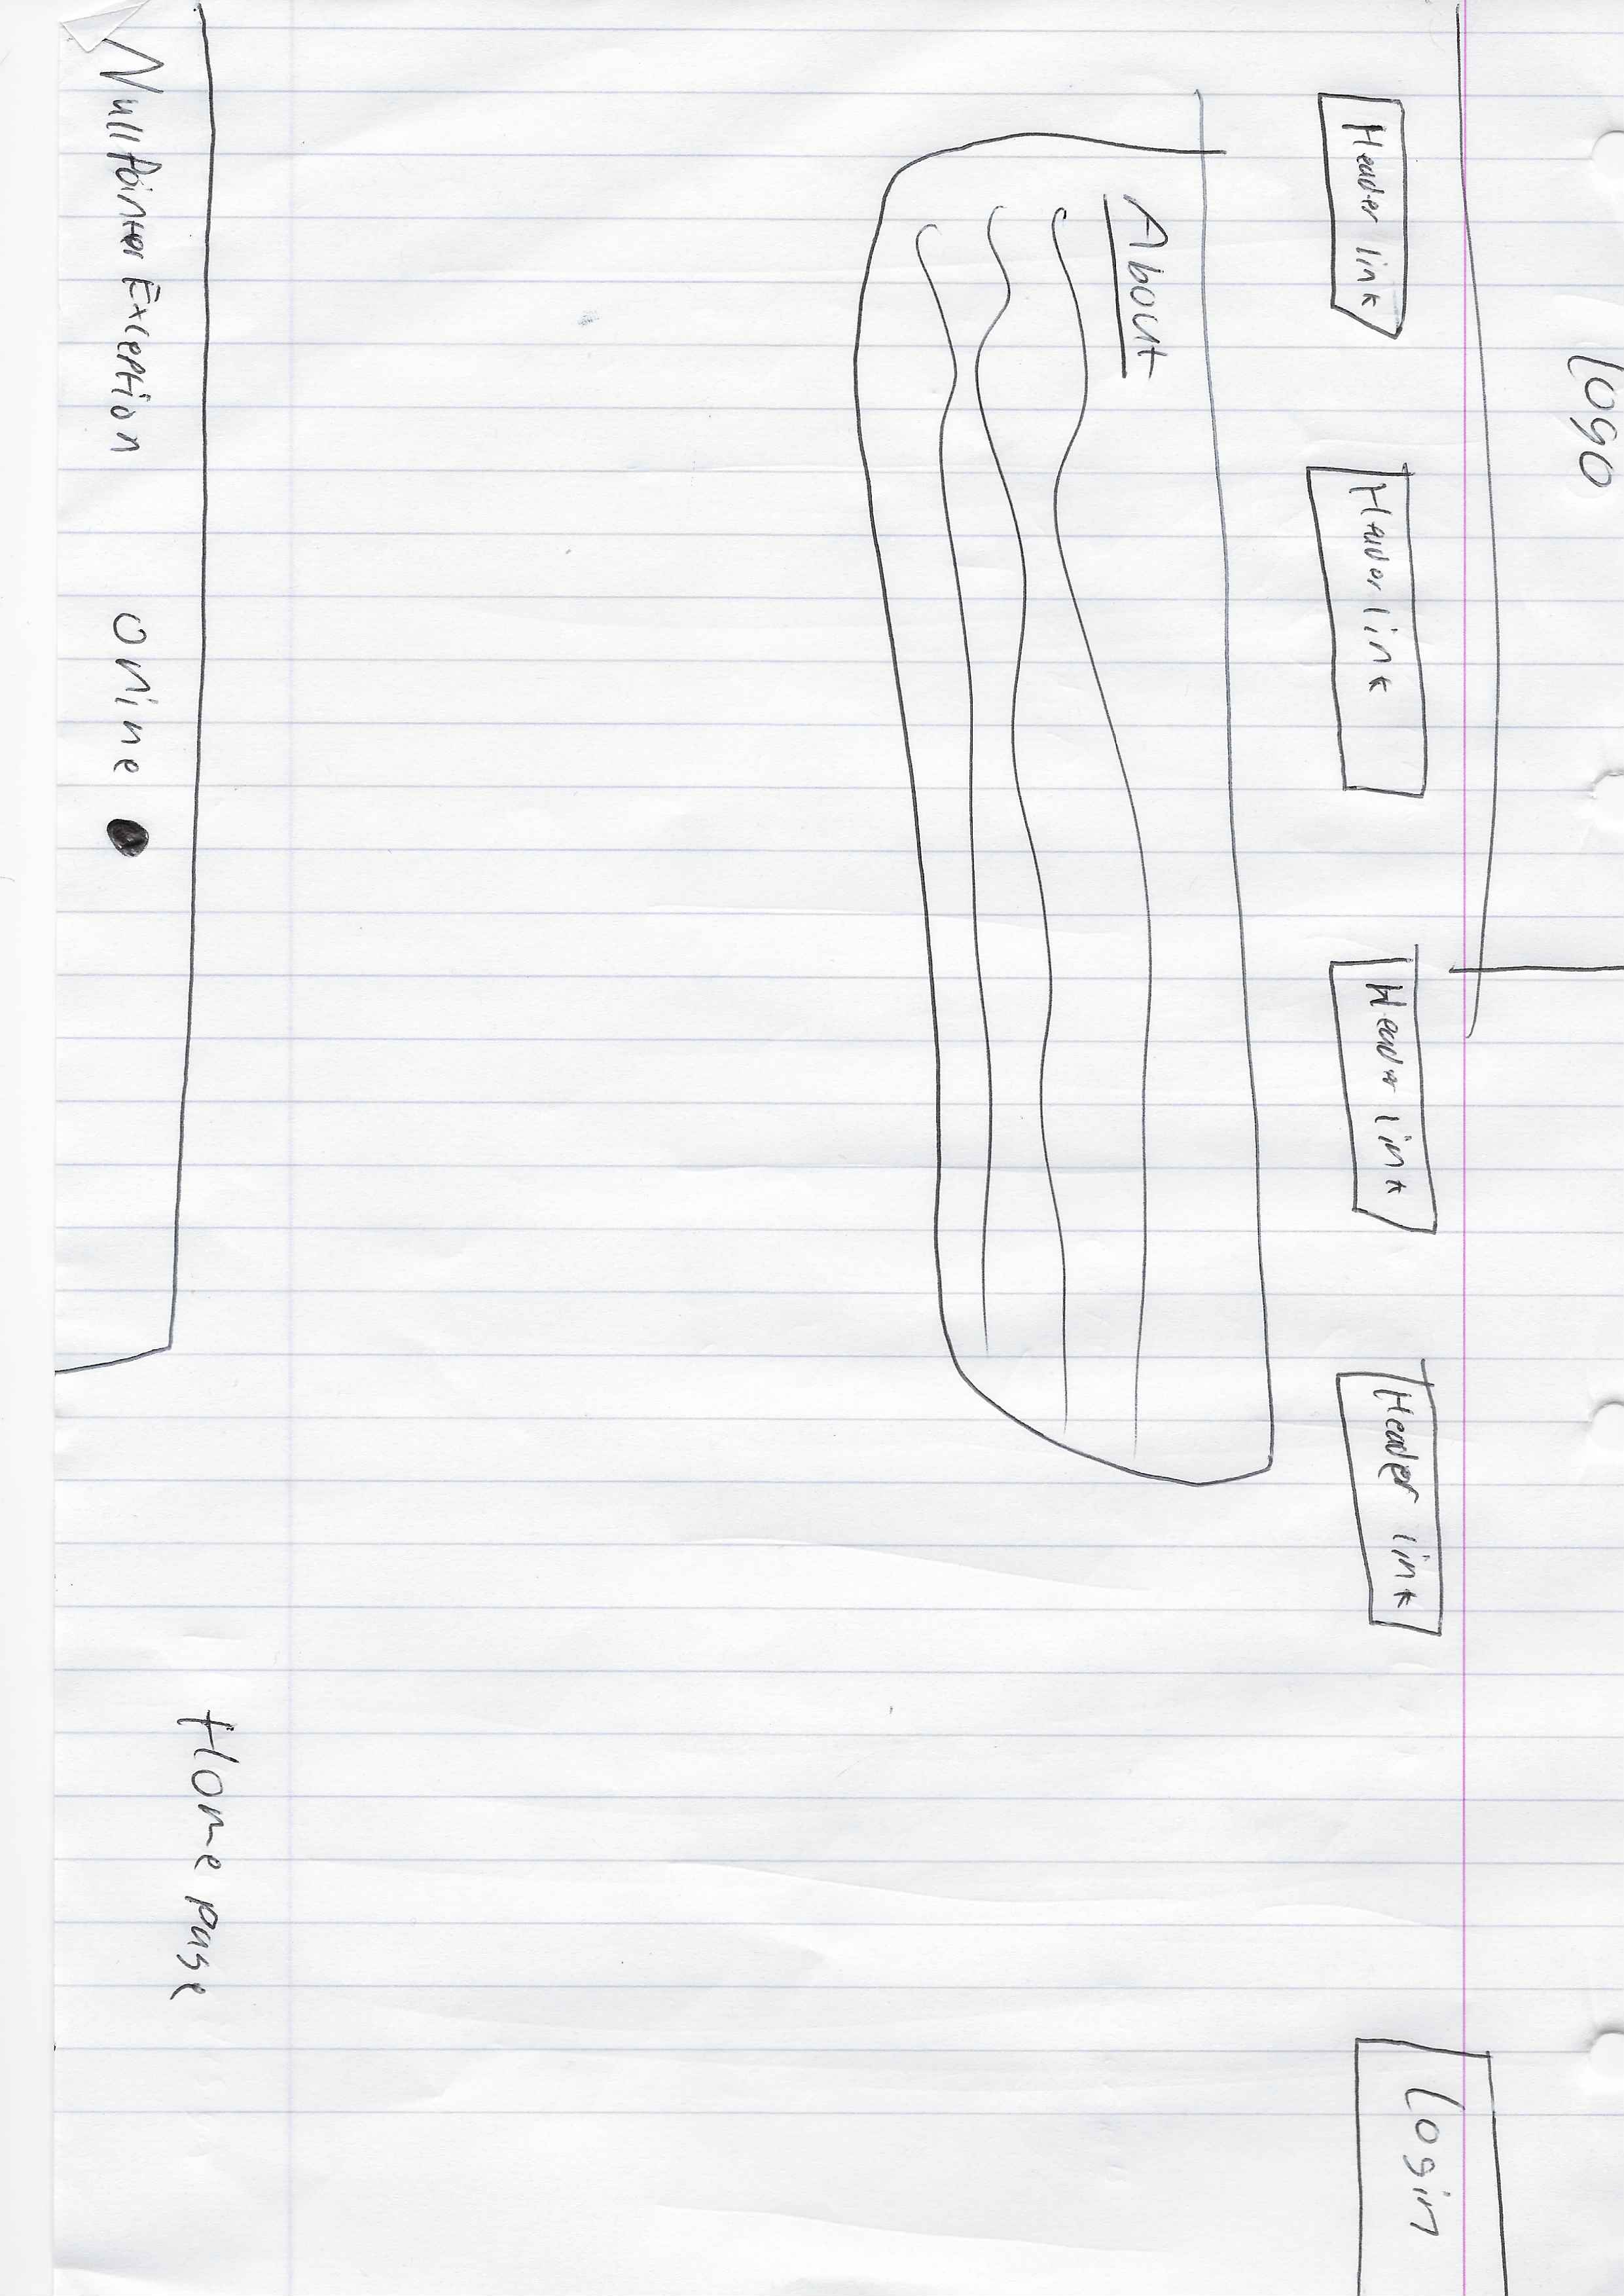 Logo
Login
Header link
Header link
Header link
Header link
About
Home page
NullPointerException
Online